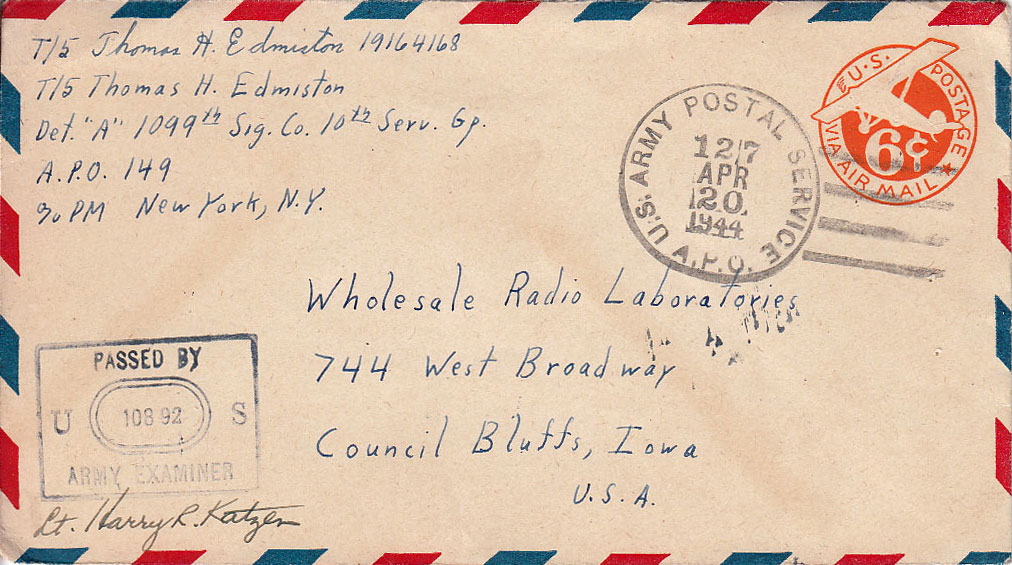 T/5 Thomas H. Edmiston 19164168
T/5 Thomas H. Edmiston
Det. "A" 1099th Sig. Co. 10th Serv. Gp.
A.P.O. 149
% PM New York, N.Y.
U.S. ARMY POSTAL SERVICE
127
APR
20
1944
A.P.O.
U.S. POSTAGE
6¢
VIA AIR MAIL
Wholesale Radio Laboratories
744 West Broadway
Council Bluffs, Iowa
U.S.A.
PASSED BY
U 10892 S
ARMY EXAMINER
Lt. Harry R. Katzen